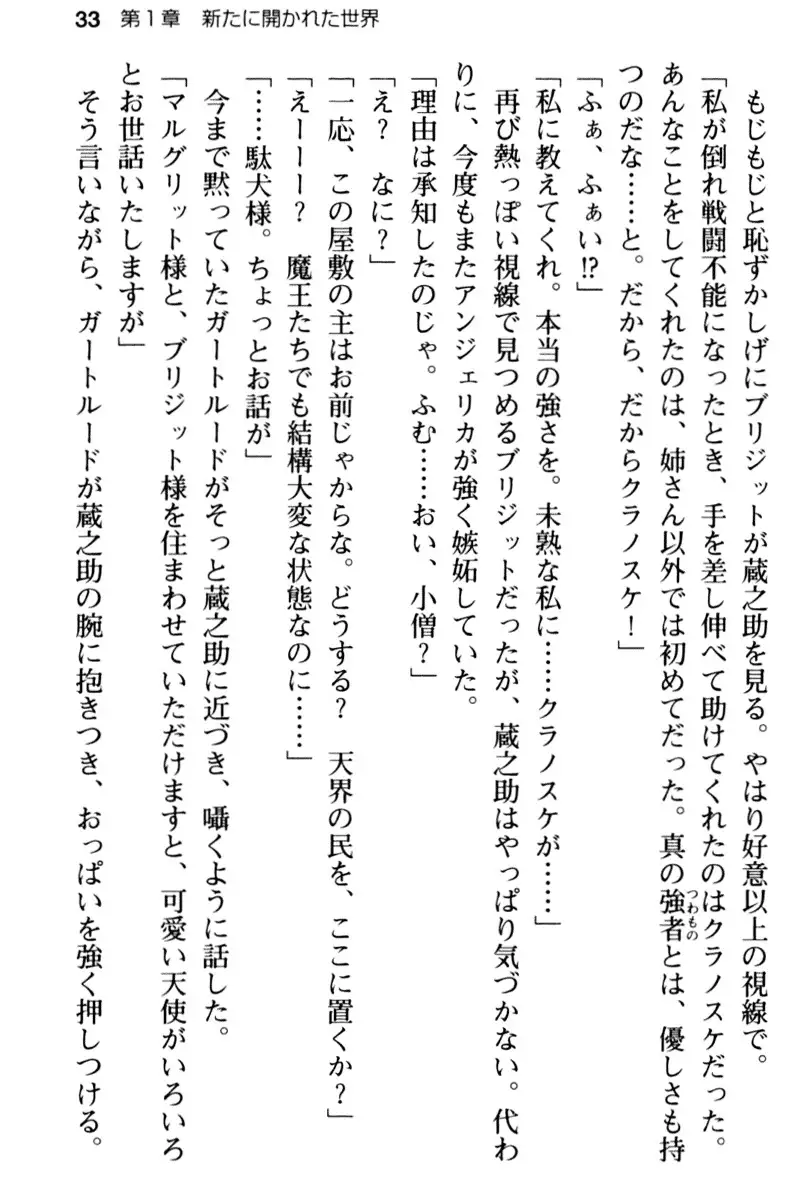 33 第1章 新たに開かれた世界
もじもじと恥ずかしげにブリジットが蔵之助を見る。やはり好意以上の視線で。
「私が倒れ戦闘不能になったとき、手を差し伸べて助けてくれたのはクラノスケだった。
あんなことをしてくれたのは、姉さん以外では初めてだった。真の強者とは、優しさも持
つわもの
つのだな……と。だから、だからクラノスケ！」
「ふぁ、ふぁい!?」
「私に教えてくれ。本当の強さを。未熟な私に……クラノスケが……」
再び熱っぽい視線で見つめるブリジットだったが、蔵之助はやっぱり気づかない。代わ
りに、今度もまたアンジェリカが強く嫉妬していた。
「理由は承知したのじゃ。ふむ……おい、小僧？」
「え？　なに？」
「一応、この屋敷の主はお前じゃからな。どうする？　天界の民を、ここに置くか？」
「えーーー？　魔王たちでも結構大変な状態なのに……」
「……駄犬様。ちょっとお話が」
今まで黙っていたガートルードがそっと蔵之助に近づき、囁くように話した。
「マルグリット様と、ブリジット様を住まわせていただけますと、可愛い天使がいろいろ
とお世話いたしますが」
そう言いながら、ガートルードが蔵之助の腕に抱きつき、おっぱいを強く押しつける。